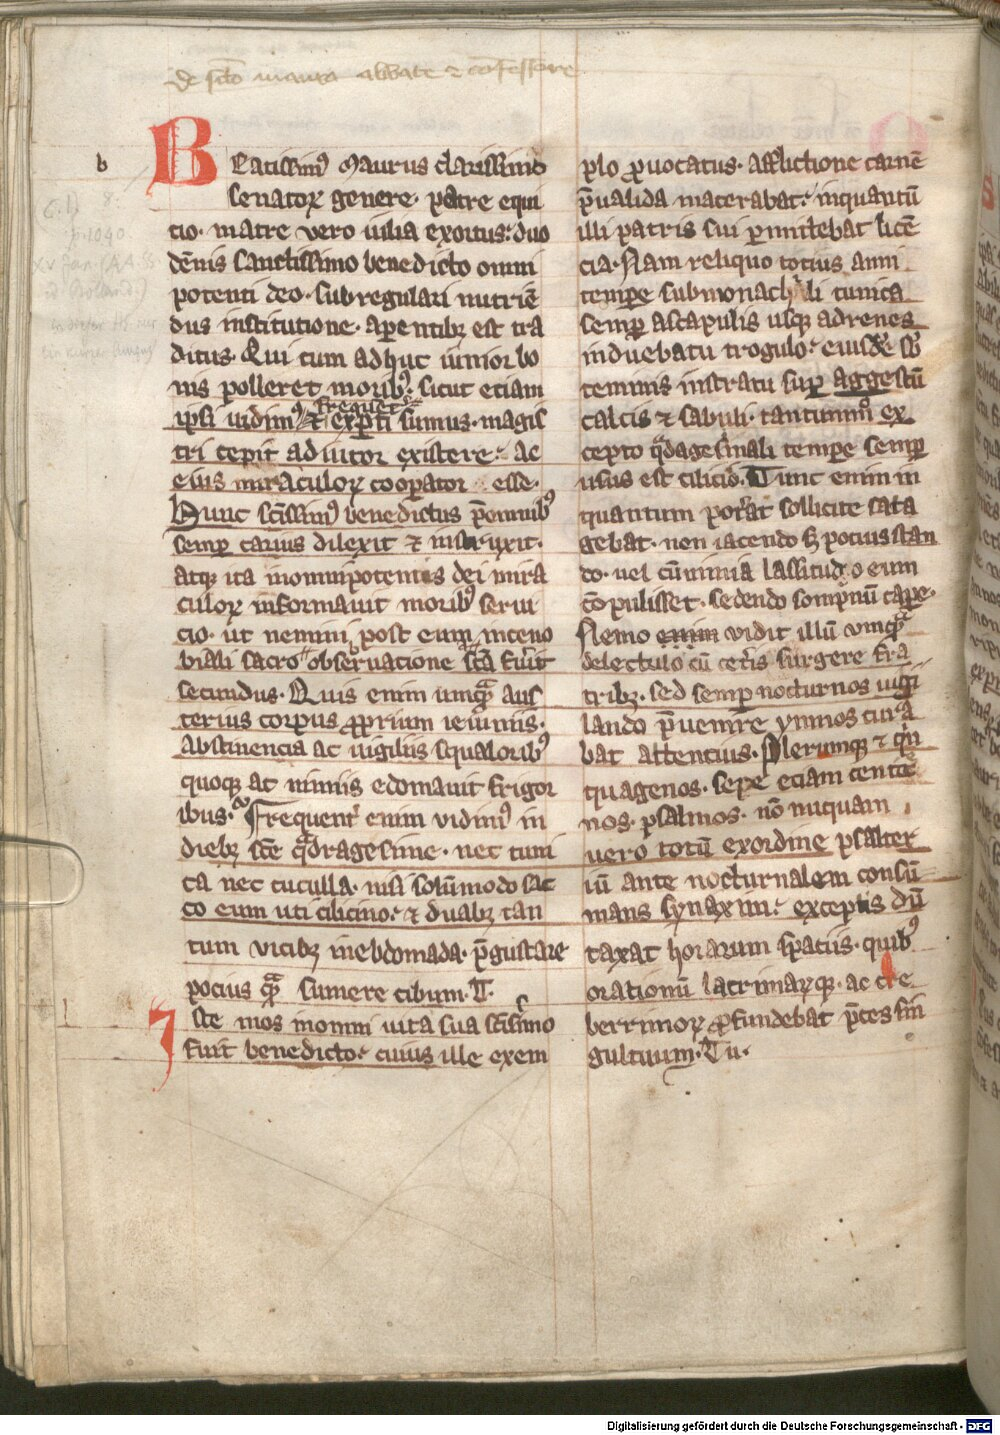 de scto mauro abbate ⁊ cōfessore
b
Beatissimꝰ Maurus clarissimo
senatoꝝ genere· patre equi
tio· matre vero iulia exortus: duo
dēnis sanctissimo benedicto omni
potenti deo· sub regulari nutriē
dus institutione· a parentibꝫ est tra
ditus· Qui cum adhuc iunior bo
nis polleret moribꝰ: sicut etiam
ipsi vidimꝰ ⁊ frequēt̉ exꝑti sumus· magis
tri cepit adiutor existere: ac
eius miraculoꝝ cooꝑator esse·
Hunc sc̄issimꝰ benedictus p̄ omnibꝰ
semꝑ carius dilexit ⁊ instruxit·
atqꝫ ita in omnipotentis dei mira
culoꝝ informauit moribꝰ serui
cio· ut nemini post eum in ceno
biali sacro obseruatione sc̄a fu̓it
secundus· Quis enim umqᷓ aus
terius corpus ꝓprium ieiuniis·
abstinencia ac uigiliis squaloribꝰ
quoqꝫ ac nimiis edomauit frigor
ibus· Frequent̓ enim vidimꝰ in
diebꝫ sc̄e qᷓdragesime· nec tuni
ca nec cuculla· nisi solūmodo sac
co eum uti cilicino: ⁊ duabꝫ tan
tum vicibꝫ in ebdomada· p̄gustare
pocius qᷓꝫ sumere cibum· T·
Iste mos in omni uita sua sc̄issimo
fuit benedicto: cuius ille exem
plo ꝓuocatus· afflictione carnē
p̄ualida macerabat: inquantū
illi patris sui ꝑmittebat licē
cia· Nam reliquo totius anni
tempe sub monachali tunica
semꝑ a scapulis usqꝫ ad renes
induebatur trogulo: eiusdē sb̓
teminis instratu suꝑ aggestū
calcis ⁊ sabuli· tantummꝰ ex
cepto qᷓdagesimali tempe semꝑ
usus est cilicio· Tunc enim in
quantum poterat sollicite sata
gebat· non iacendo sꝫ pocius stan
do· uel cū nimia lassitudo eum
cōpulisset· sedendo sompnū caꝑe·
Nemo enim vidit illū vmqᷓ
de lectulo cū cet̓is surgere fra
tribꝫ· sed semꝑ nocturnos uigi
lando p̄uenire ymnos cura
bat attencius· Plerumqꝫ ⁊ qͥn
quagenos· sepe etiam centē
nos· psalmos· nō nuquam
uero totū ex ordine psalter
iū ante nocturnalem consū
mans synaxim: exceptis dū
taxat horarum spaciis· quibꝰ
orationū lacrimarqꝫ· ac cre
berrimoꝝ ꝓfundebat p̄ces sin
gultuum· Tu·
Digitalisierung gefördert durch die Deutsche Forschungsgemeinschaft - DFG